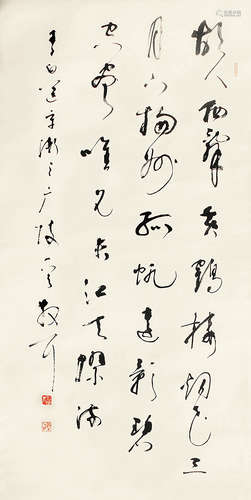 故人西辭黃鶴樓烟花三
月下揚州孤帆遠影碧
空盡唯見長江天際流
李白送孟浩然之广陵 散耳